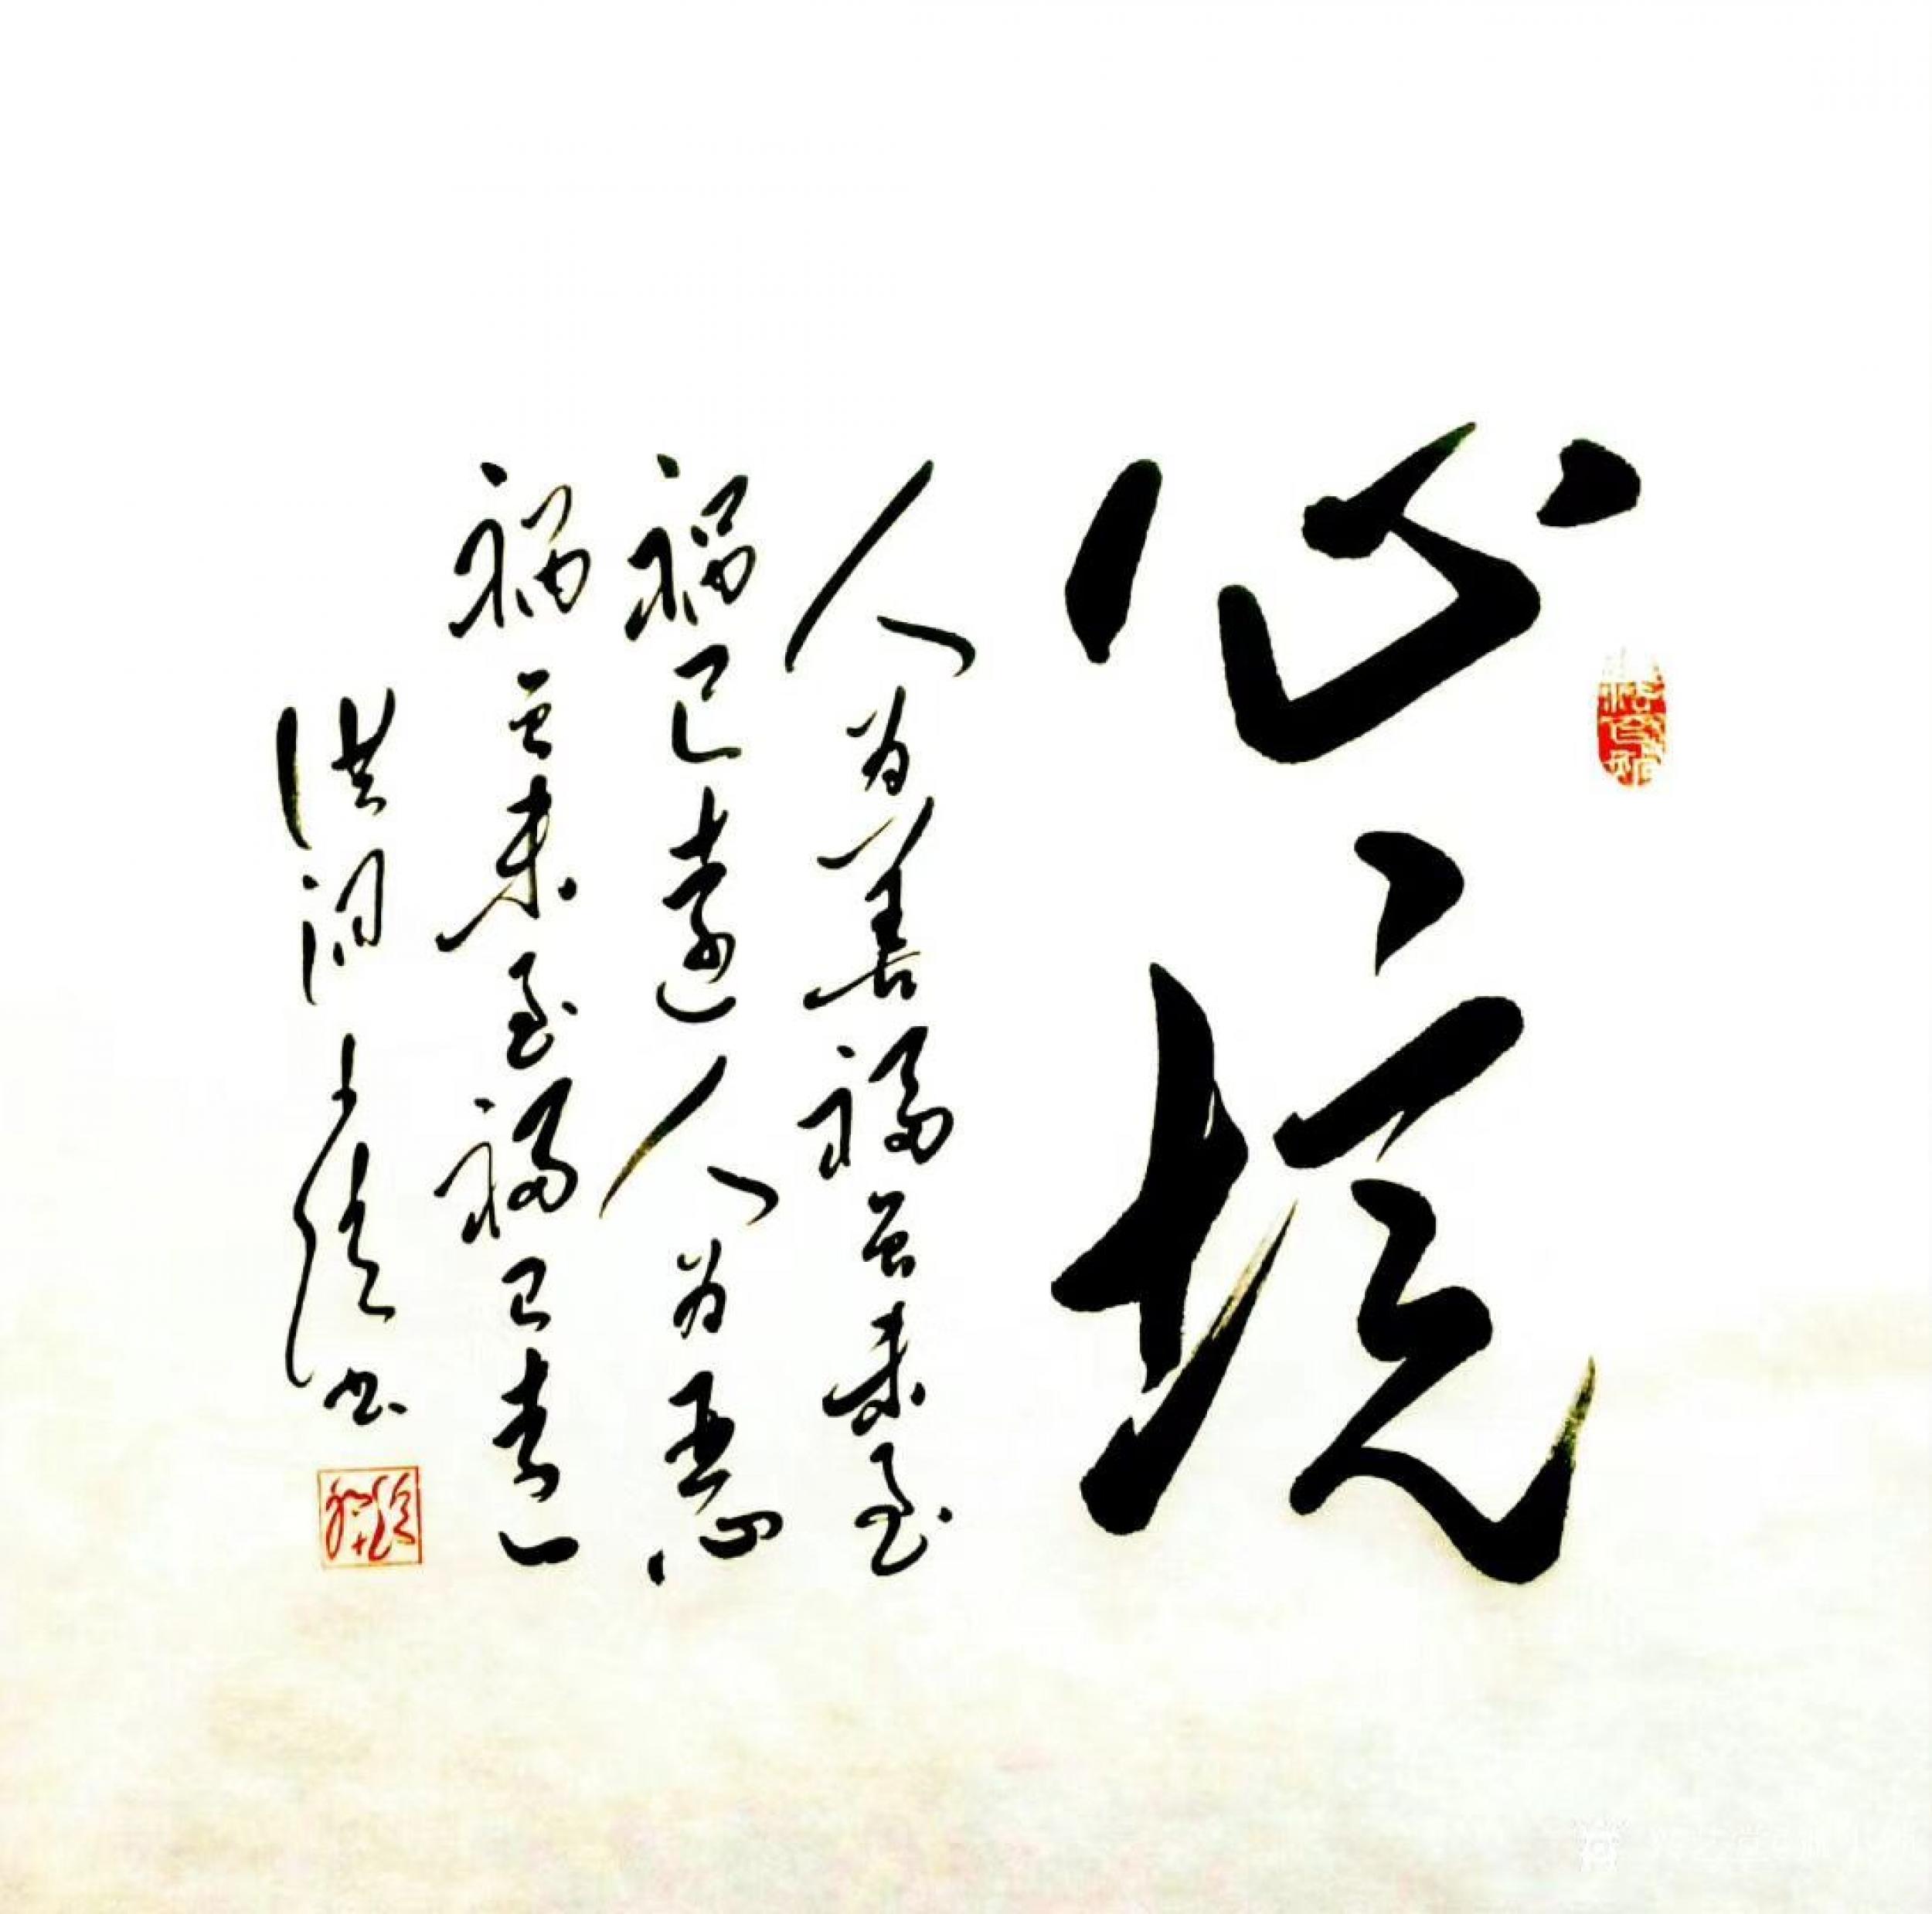 心境
人为善福虽未至
祸已远人为恶
祸虽未至福已远
洪洞 书